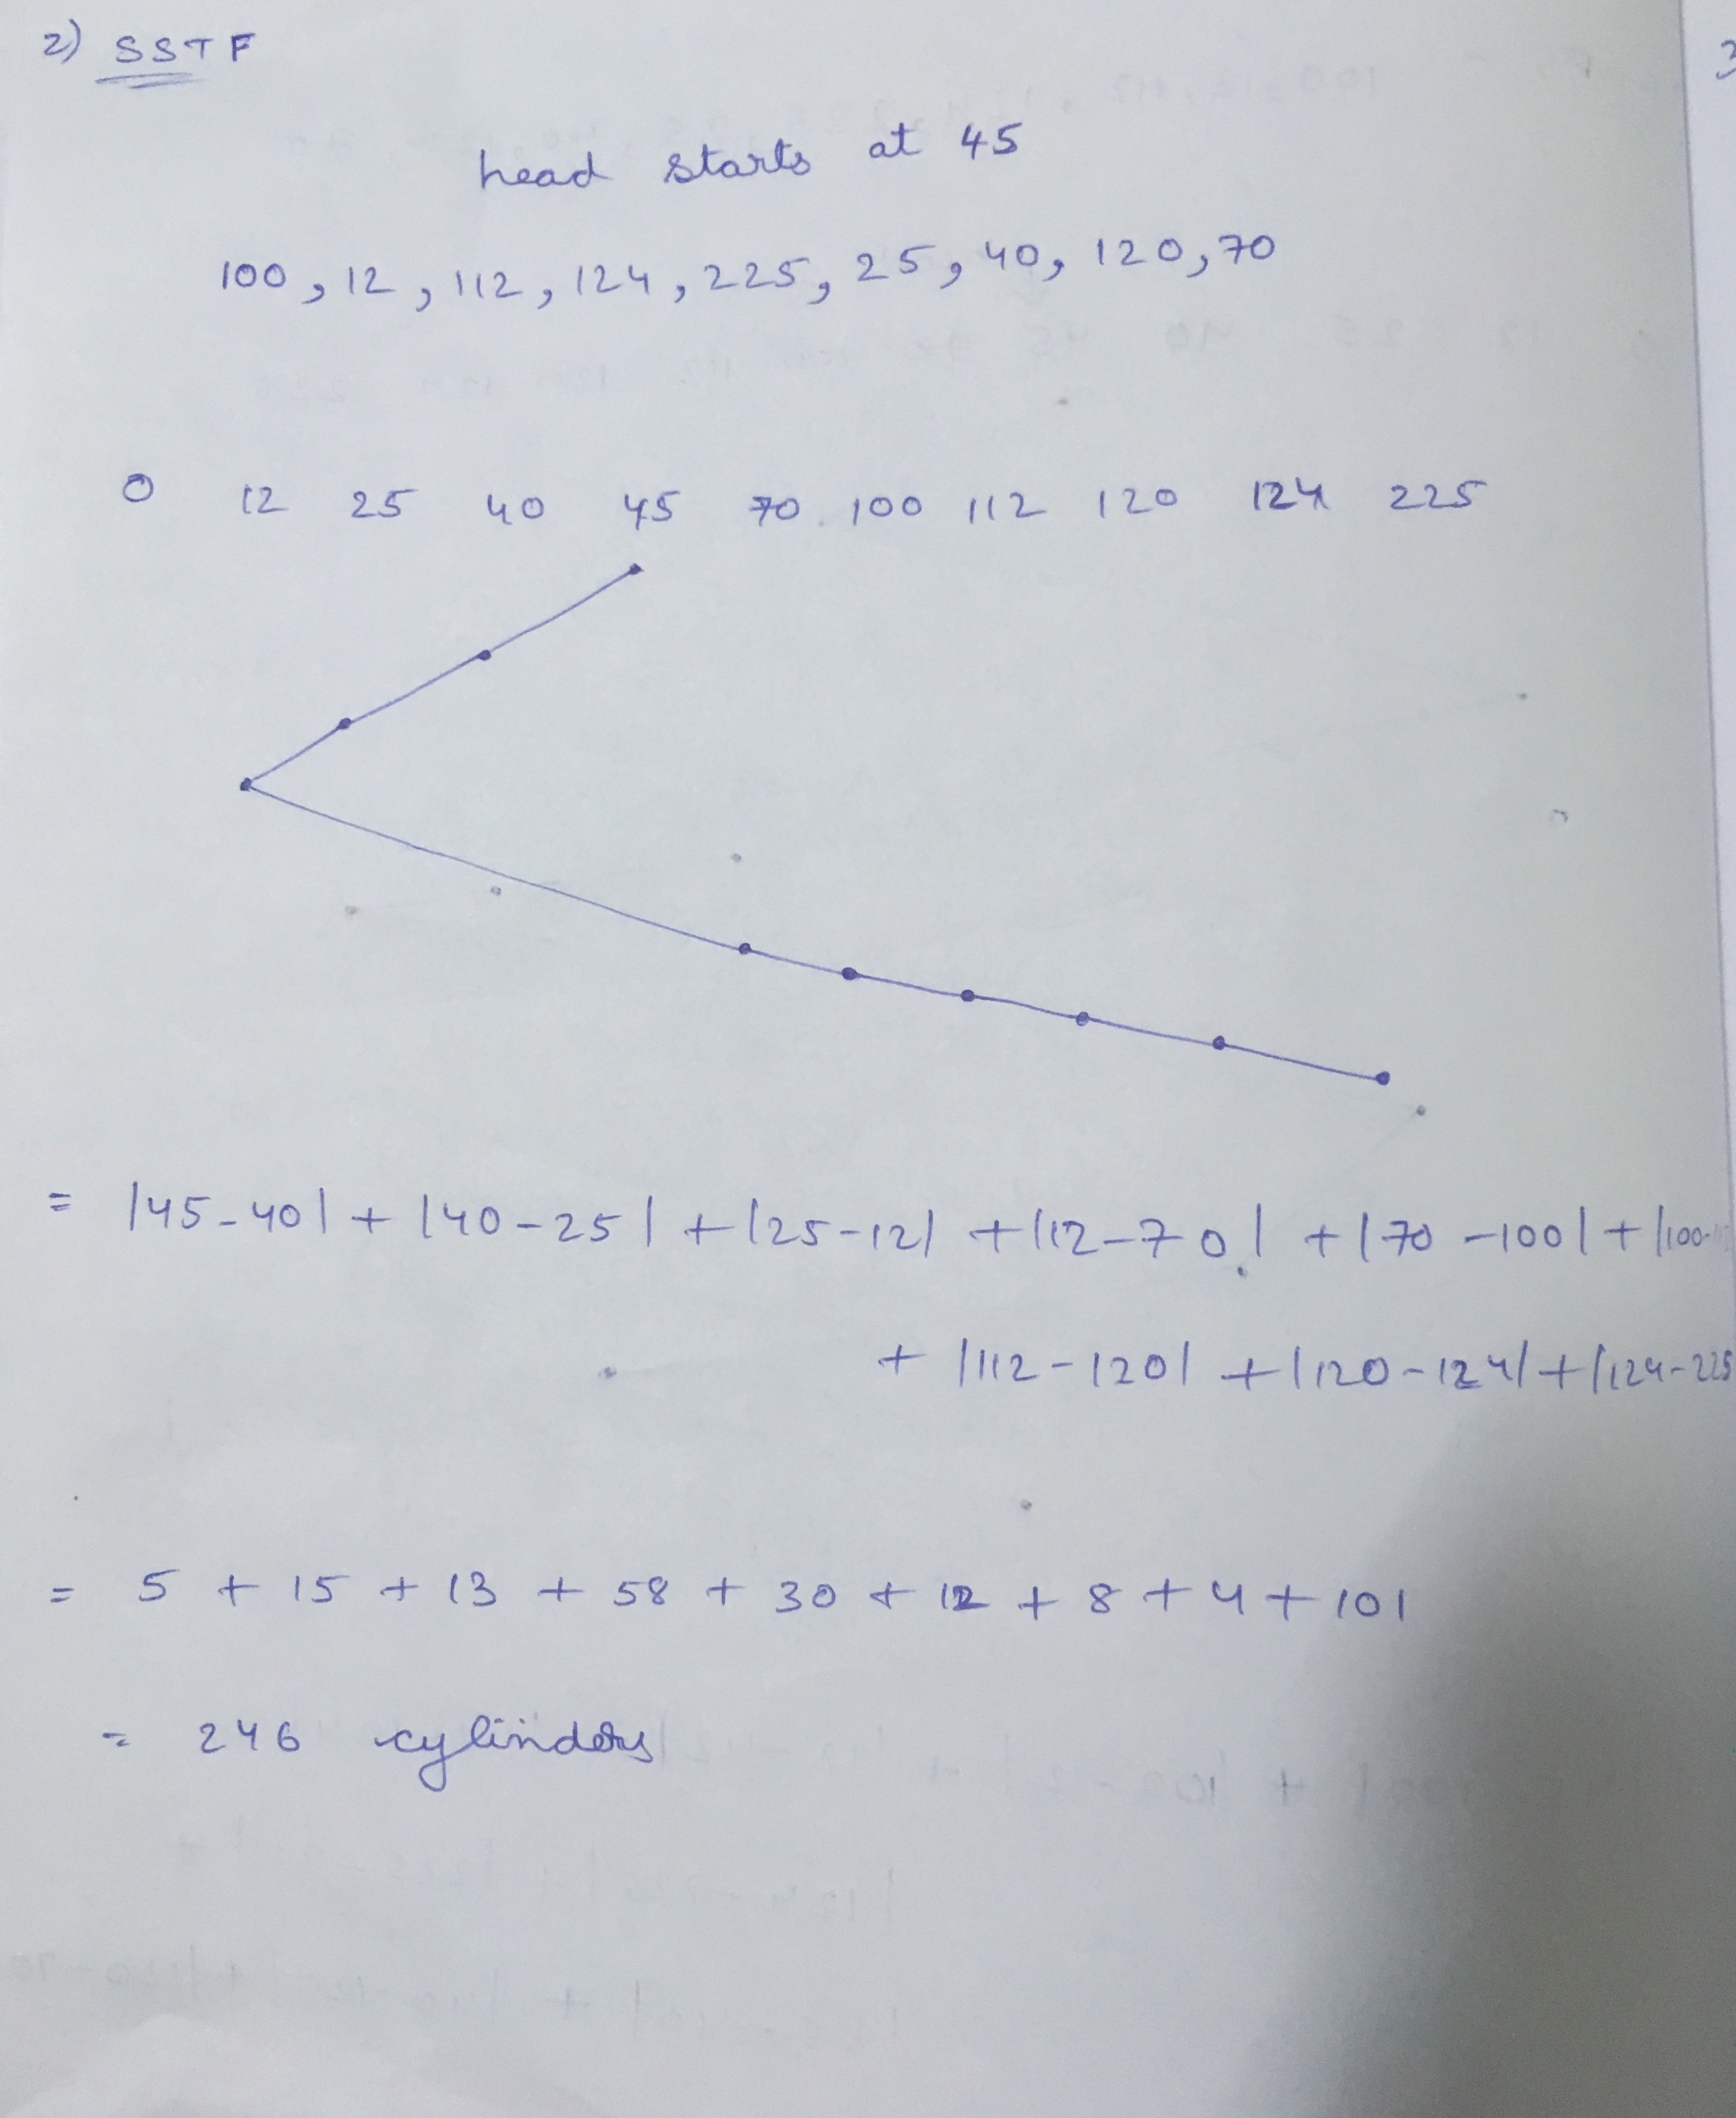 2) SSTF
head starts at 45
100, 12, 112, 124, 225, 25, 40, 120, 70
0 12 25 40 45 70 100 112 120 124 225
= |45-40| + |40-25| + |25-12| + |12-70| + |70-100| + |100-
+ |112-120| + |120-124| + |124-225
= 5 + 15 + 13 + 58 + 30 + 12 + 8 + 4 + 101
= 246 cylinders